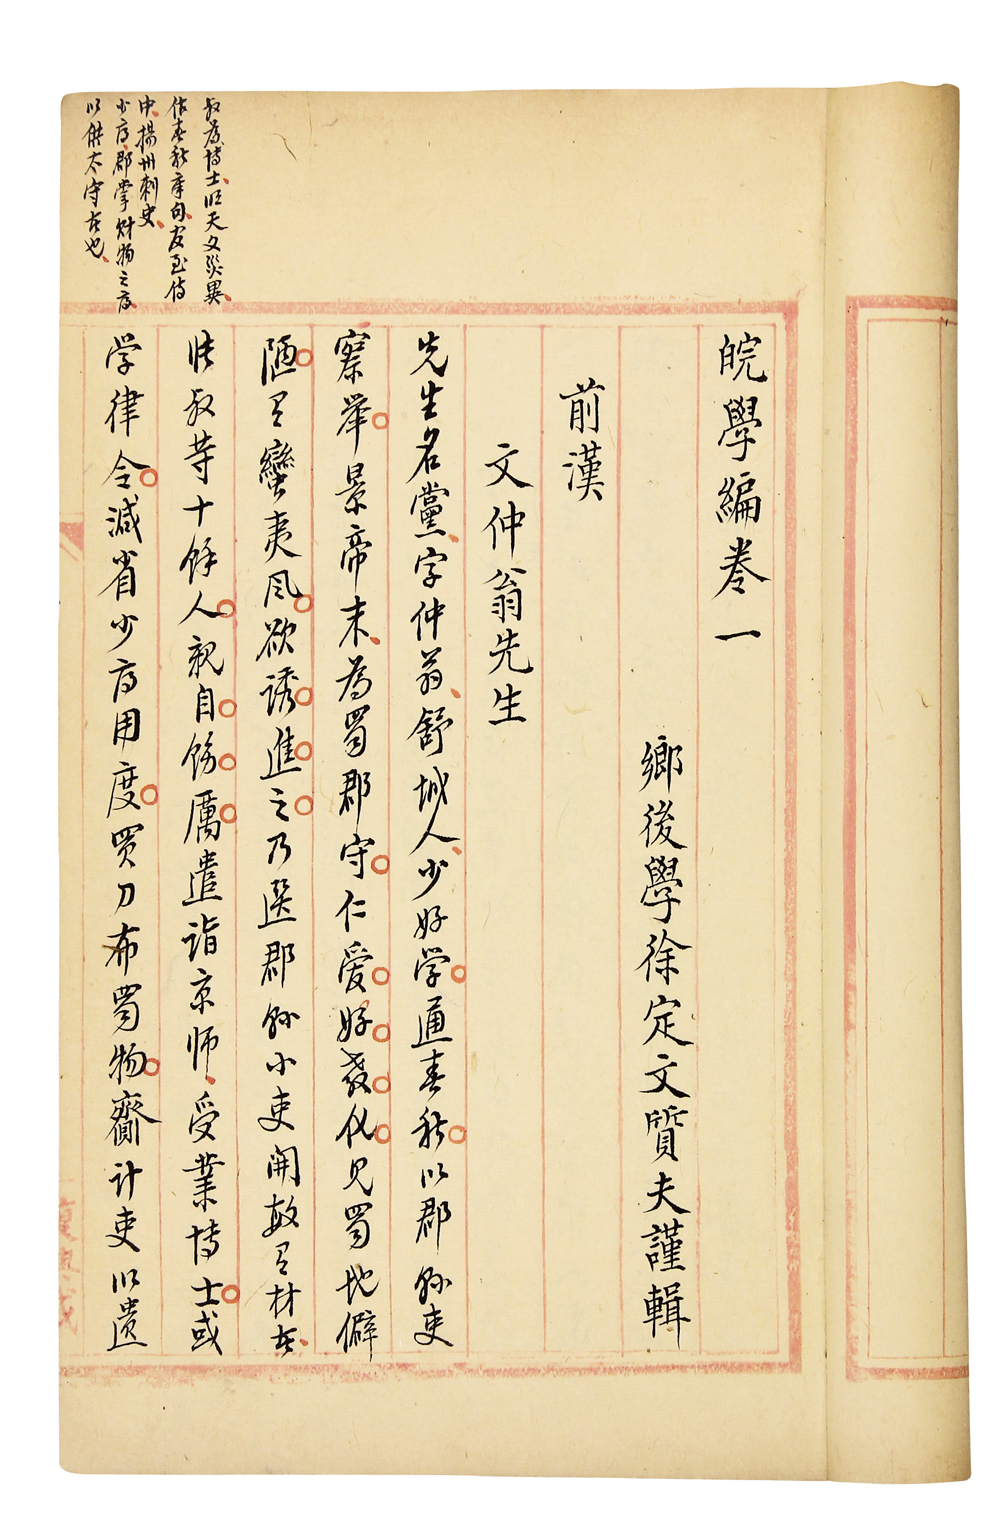 皖學編卷一
鄉後學徐定文質夫謹輯
前漢
文仲翁先生
先生名黨字仲翁舒城人少好学通春秋以郡縣吏
察举景帝末為蜀郡守仁爱好教化見蜀地僻
陋有蠻夷風欲誘進之乃選郡縣小吏開敏有材者
张叔等十餘人親自飭厲遣詣京师受業博士或
学律令減省少府用度買刀布蜀物齎計吏以遺
叔為博士明天文災異
作春秋章句官至侍
中揚州刺史
少府郡掌財物之府
以供太守者也